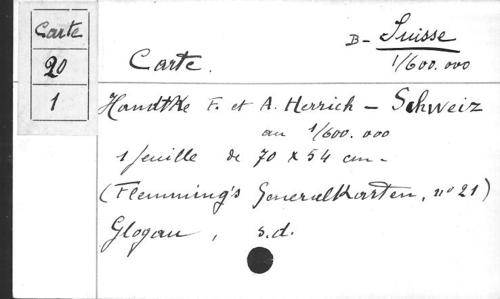 Carte
20
1
B - Suisse
1/600.000
Carte.
Handtke F. et A. Herrich - Schweiz
au 1/600.000
1 feuille de 70 x 54 cm -
(Flemming's Generalkarten, nº 21)
Glogau, s.d.